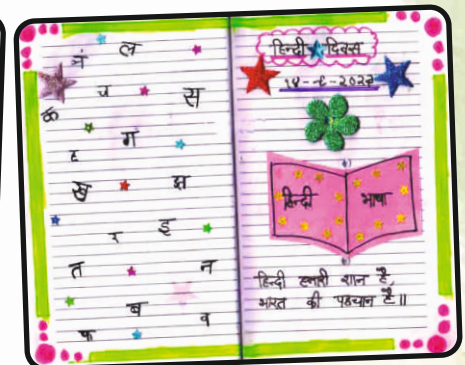 ल
च
स
क
ग
ह
ख
क्ष
र
इ
त
न
ब
व
फ
हिन्दी दिवस
हिन्दी
भाषा
हिन्दी हमारी शान है,
भारत की पहचान है॥